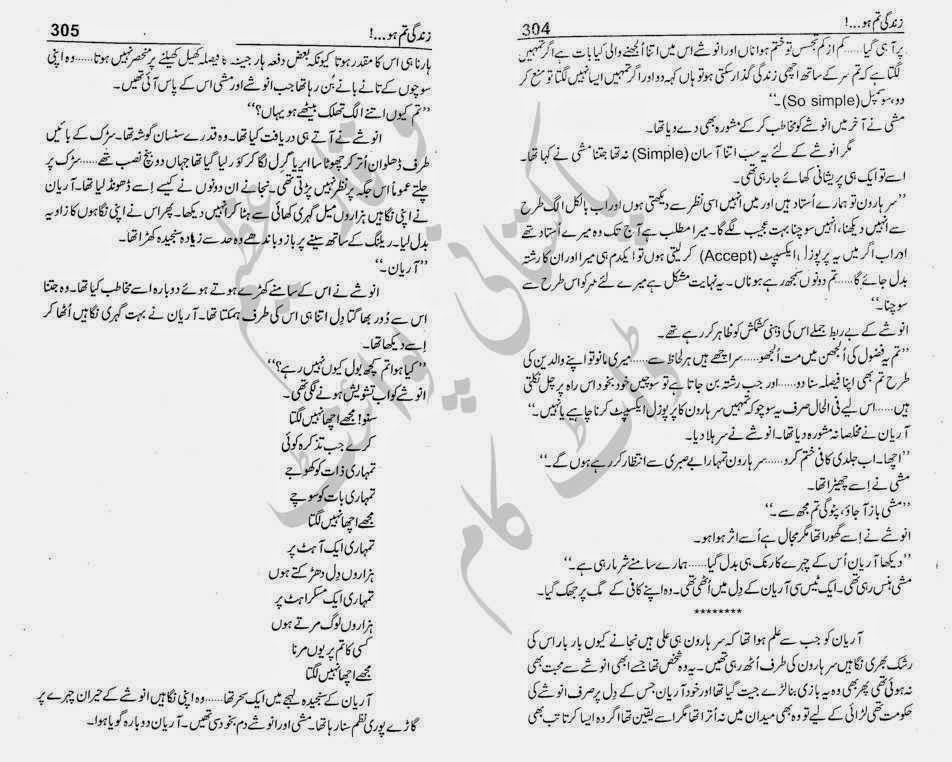 زندگی تم ہو...!
304
پر آ ہی گیا......کم از کم تجسس تو ختم ہوا ناں اور انوشے اس میں اتنا اُلجھنے والی کیا بات ہے اگر تمہیں
لگتا ہے کہ تم سر کے ساتھ اچھی زندگی گذار سکتی ہو تو ہاں کہہ دو اور اگر تمہیں ایسا نہیں لگتا تو منع کر
دو، سو سمپل (So simple)۔‘‘
مشی نے آخر میں انوشے کو مخاطب کر کے مشورہ بھی دے دیا تھا۔
مگر انوشے کے لئے یہ سب اتنا آسان (Simple) نہ تھا جتنا مشی نے کہا تھا۔
اسے تو ایک ہی پریشانی کھائے جا رہی تھی۔
’’سر ہارون تو ہمارے اُستاد ہیں اور میں انہیں اسی نظر سے دیکھتی ہوں اور اب بالکل الگ طرح
سے انہیں دیکھنا، انہیں سوچنا بہت عجیب لگے گا۔ میرا مطلب ہے آج تک وہ میرے اُستاد تھے
اور اب اگر میں یہ پرپوزل ایکسیپٹ (Accept) کر لیتی ہوں تو ایکدم ہی میرا اور ان کا رشتہ
بدل جائے گا......تم دونوں سمجھ رہے ہو ناں۔ یہ نہایت مشکل ہے میرے لئے سر کو اس طرح سے
سوچنا۔‘‘
انوشے کے بے ربط جملے اس کی ذہنی کشمکش کو ظاہر کر رہے تھے۔
’’تم یہ فضول کی اُلجھن میں مت اُلجھو......سر اچھے ہیں ہر لحاظ سے......میری مانو تو اپنے والدین کی
طرح تم بھی اپنا فیصلہ سنا دو......اور جب رشتہ بن جاتا ہے تو سوچیں خود بخود اس راہ پر چل نکلتی
ہیں......اس لیے فی الحال صرف یہ سوچو کہ تمہیں سر ہارون کا پرپوزل ایکسیپٹ کرنا چاہیے یا نہیں۔‘‘
آریان نے مخلصانہ مشورہ دیا تھا۔ انوشے نے سر ہلا دیا۔
’’اچھا۔ اب جلدی کافی ختم کرو......سر ہارون تمہارا بے صبری سے انتظار کر رہے ہوں گے۔‘‘
مشی نے اِسے چھیڑا تھا۔
’’مشی باز آ جاؤ، پٹو گی تم مجھ سے۔‘‘
انوشے نے اِسے گھورا تھا مگر مجال ہے اُسے اثر ہوا ہو۔
’’دیکھا آریان اُس کے چہرے کا رنگ ہی بدل گیا......ہمارے سامنے شرما رہی ہے۔‘‘
مشی ہنس رہی تھی۔ ایک ٹیس سی آریان کے دِل میں اُٹھی تھی۔ وہ اپنے کافی کے مگ پر جھک گیا۔
********
آریان کو جب سے علم ہوا تھا کہ سر ہارون ہی علی ہیں نجانے کیوں بار بار اس کی
رشک بھری نگاہیں سر ہارون کی طرف اُٹھ رہی تھیں۔ یہ وہ شخص تھا جسے ابھی انوشے سے محبت بھی
نہ ہوئی تھی پھر بھی وہ یہ بازی بنا لڑے جیت گیا تھا اور خود آریان جس کے دِل پر صرف انوشے کی
حکومت تھی لڑائی کے لیے تو وہ بھی میدان میں نہ اُترا تھا مگر اسے یقین تھا اگر وہ ایسا کرتا تب بھی
زندگی تم ہو...!
305
ہارنا ہی اس کا مقدر ہوتا کیونکہ بعض دفعہ ہار جیت کا فیصلہ کھیل کھیلنے پر منحصر نہیں ہوتا......وہ اپنی
سوچوں کے تانے بانے بُن رہا تھا جب انوشے اور مشی اس کے پاس آئی تھیں۔
’’تم کیوں اتنے الگ تھلگ بیٹھے ہو یہاں؟‘‘
انوشے نے آتے ہی دریافت کیا تھا۔ وہ قدرے سنسان گوشہ تھا۔ سڑک کے بائیں
طرف ڈھلوان اُتر کر چھوٹا سا ایریا گرل لگا کر کور لیا گیا تھا جہاں دو بنچ نصب تھے......سڑک پر
چلتے عموماً اس جگہ پر نظر نہیں پڑتی تھی۔ نجانے ان دونوں نے کیسے اِسے ڈھونڈ لیا تھا۔ آریان
نے اپنی نگاہیں ہزاروں میل گہری کھائی سے ہٹا کر انہیں دیکھا۔ پھر اس نے اپنی نگاہوں کا زاویہ
بدل لیا۔ ریلنگ کے ساتھ سینے پر بازو باندھے وہ حد سے زیادہ سنجیدہ کھڑا تھا۔
’’آریان۔‘‘
انوشے نے اس کے سامنے کھڑے ہوتے ہوئے دوبارہ اسے مخاطب کیا تھا۔ وہ جتنا
اس سے دُور بھاگتا دِل اتنا ہی اس کی طرف ہمکتا تھا۔ آریان نے بہت گہری نگاہیں اُٹھا کر
اِسے دیکھا تھا۔
’’کیا ہوا تم کچھ بول کیوں نہیں رہے؟‘‘
انوشے کو اب تشویش ہونے لگی تھی۔
سنو! مجھے اچھا نہیں لگتا
کرے جب تذکرہ کوئی
تمہاری ذات کو کھوجے
تمہاری بات کو سوچے
مجھے اچھا نہیں لگتا
تمہاری ایک آہٹ پر
ہزاروں دِل دھڑکتے ہوں
تمہاری ایک مسکراہٹ پر
ہزاروں لوگ مرتے ہوں
کسی کا تم پر یوں مرنا
مجھے اچھا نہیں لگتا
آریان کے سنجیدہ لہجے میں ایک سحر تھا......وہ اپنی نگاہیں انوشے کے حیران چہرے پر
گاڑے پوری نظم سنا رہا تھا۔ مشی اور انوشے دم بخود سی تھیں۔ آریان دوبارہ گویا ہوا۔
پاکستانی پوائنٹ
ڈاٹ کام